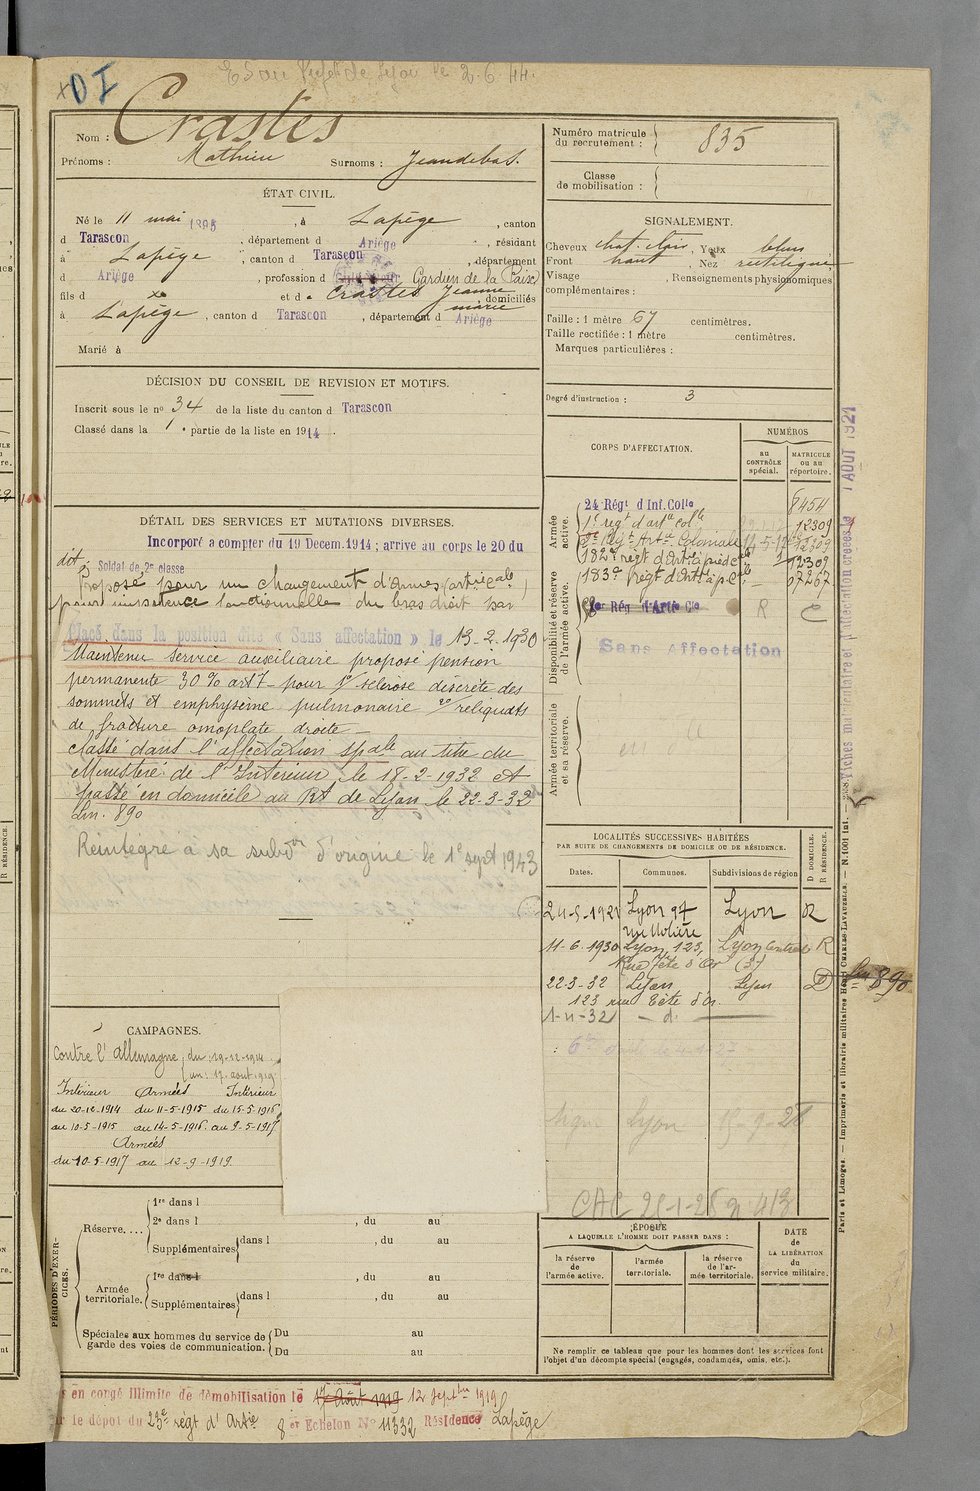 OI
le 2-6-44.
Nom : Crastes
Prénoms : Mathieu Surnoms : Jeandebas.
ÉTAT CIVIL.
Né le 11 mai 1895, à Lapège, canton
d Tarascon, département d Ariège, résidant
à Lapège, canton d Tarascon, département
d Ariège, profession d Gardien de la Paix
fils d x et d Crastes Jeanne marie domiciliés
à Lapège, canton d Tarascon, département d Ariège
Marié à
DÉCISION DU CONSEIL DE REVISION ET MOTIFS.
Inscrit sous le no 34 de la liste du canton d Tarascon
Classé dans la 1e partie de la liste en 1914.
DÉTAIL DES SERVICES ET MUTATIONS DIVERSES.
Incorporé a compter du 19 Decem. 1914 ; arrive au corps le 20 du
dit, Soldat de 2e classe
Proposé pour un changement d'Armes
pour impotence fonctionnelle du bras droit par
Placé dans la position dite « Sans affectation » le 13-2-1930
Maintenu service auxiliaire proposé pension
permanente 30 % art 7 pour 1o/ sclérose discrète des
sommets et emphysème pulmonaire 2o/ reliquats
de fracture omoplate droite
classé dans l'affectation spale au titre du
Ministère de l'Intérieur le 18-2-1932 et
passé en domicile au Rt de Lyon le 22-3-32
Lin. 890
Reintegré à sa subdon d'origine le 1e sept 1943
CAMPAGNES.
Contre l'allemagne du : 19-12-1914
au : 17 aout 1919
Intérieur Armées Intérieur
du 20-12-1914 du 11-5-1915 du 15-5-1916
au 10-5-1915 au 14-5-1916 au 9-5-1917
Armées
du 10-5-1917 au 12-9-1919.
PÉRIODES D'EXERCICES.
Réserve....
1re dans l
2e dans l , du au
Supplémentaires dans l , du au
Armée territoriale.
1re dans l , du au
Supplémentaires dans l , du au
Spéciales aux hommes du service de garde des voies de communication.
Du au
Du au
en congé illimité de démobilisation le 17 Août 1919 12 Septbre 1919
le dépôt du 23e régt d'Artie 8 er Echelon No 11332 Résidence Lapège
Numéro matricule du recrutement : 835
Classe de mobilisation :
SIGNALEMENT.
Cheveux chat. clair, Yeux bleus
Front haut, Nez rectiligne
Visage , Renseignements physionomiques
complémentaires :
Taille : 1 mètre 67 centimètres.
Taille rectifiée : 1 mètre centimètres.
Marques particulières :
Degré d'instruction : 3
CORPS D'AFFECTATION.
NUMÉROS
au CONTRÔLE spécial.
MATRICULE ou au répertoire.
Armée active.
24 Régt d Inf. Colle 8454
1e regt d'arte colle 12309
3e Regt Arte Coloniale 12309
182e régt d'Artie à pied 12309
183e régt d'Artie à p. Cle 07267
Disponibilité et réserve de l'armée active.
1er Rég. d'Artie Cle R
Sans Affectation
Armée territoriale et sa réserve.
LOCALITÉS SUCCESSIVES HABITÉES
PAR SUITE DE CHANGEMENTS DE DOMICILE OU DE RÉSIDENCE.
Dates. Communes. Subdivisions de région
D DOMICILE. R RÉSIDENCE.
24-5-1921 Lyon 97 Lyon R
rue Molière
11-6-1930 Lyon, 123, Lyon Central R
Rue Tête d'Or (3e)
22-3-32 Lyon Lyon D Lin 890
123 rue Tête d'Or
1-11-32 - d. -
Lyon
ÉPOQUE
A LAQUELLE L'HOMME DOIT PASSER DANS :
la réserve de l'armée active.
l'armée territoriale.
la réserve de l'armée territoriale.
DATE de LA LIBÉRATION du service militaire.
Ne remplir ce tableau que pour les hommes dont les services font
l'objet d'un décompte spécial (engagés, condamnés, omis, etc.).
Fiches matriculaire et d'affectation créées 1 AOUT 1921
Paris et Limoges. — Imprimerie et librairie militaires Henri CHARLES-LAVAUZELLE. — N. 1001 Int. —